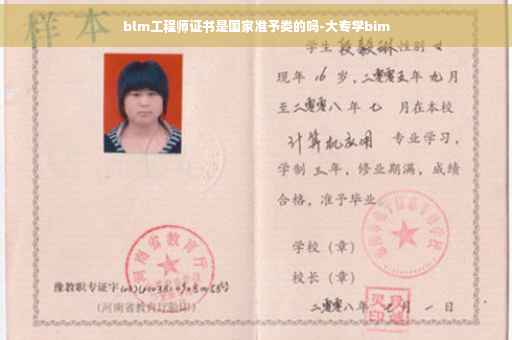 blm工程师证书是国家准予类的吗-大专学bim
样本
学生 段毅琳 性别 女
现年 16 岁,二零零五年 九 月
至二零零八 年 七 月在本校
计算机应用 专业学习,
学制 三 年,修业期满,成绩
合格,准予毕业
学校(章)
校长(章)
二零零八年 七 月 一 日
河南省教育厅
豫教职专证字
(河南省教育厅验印)